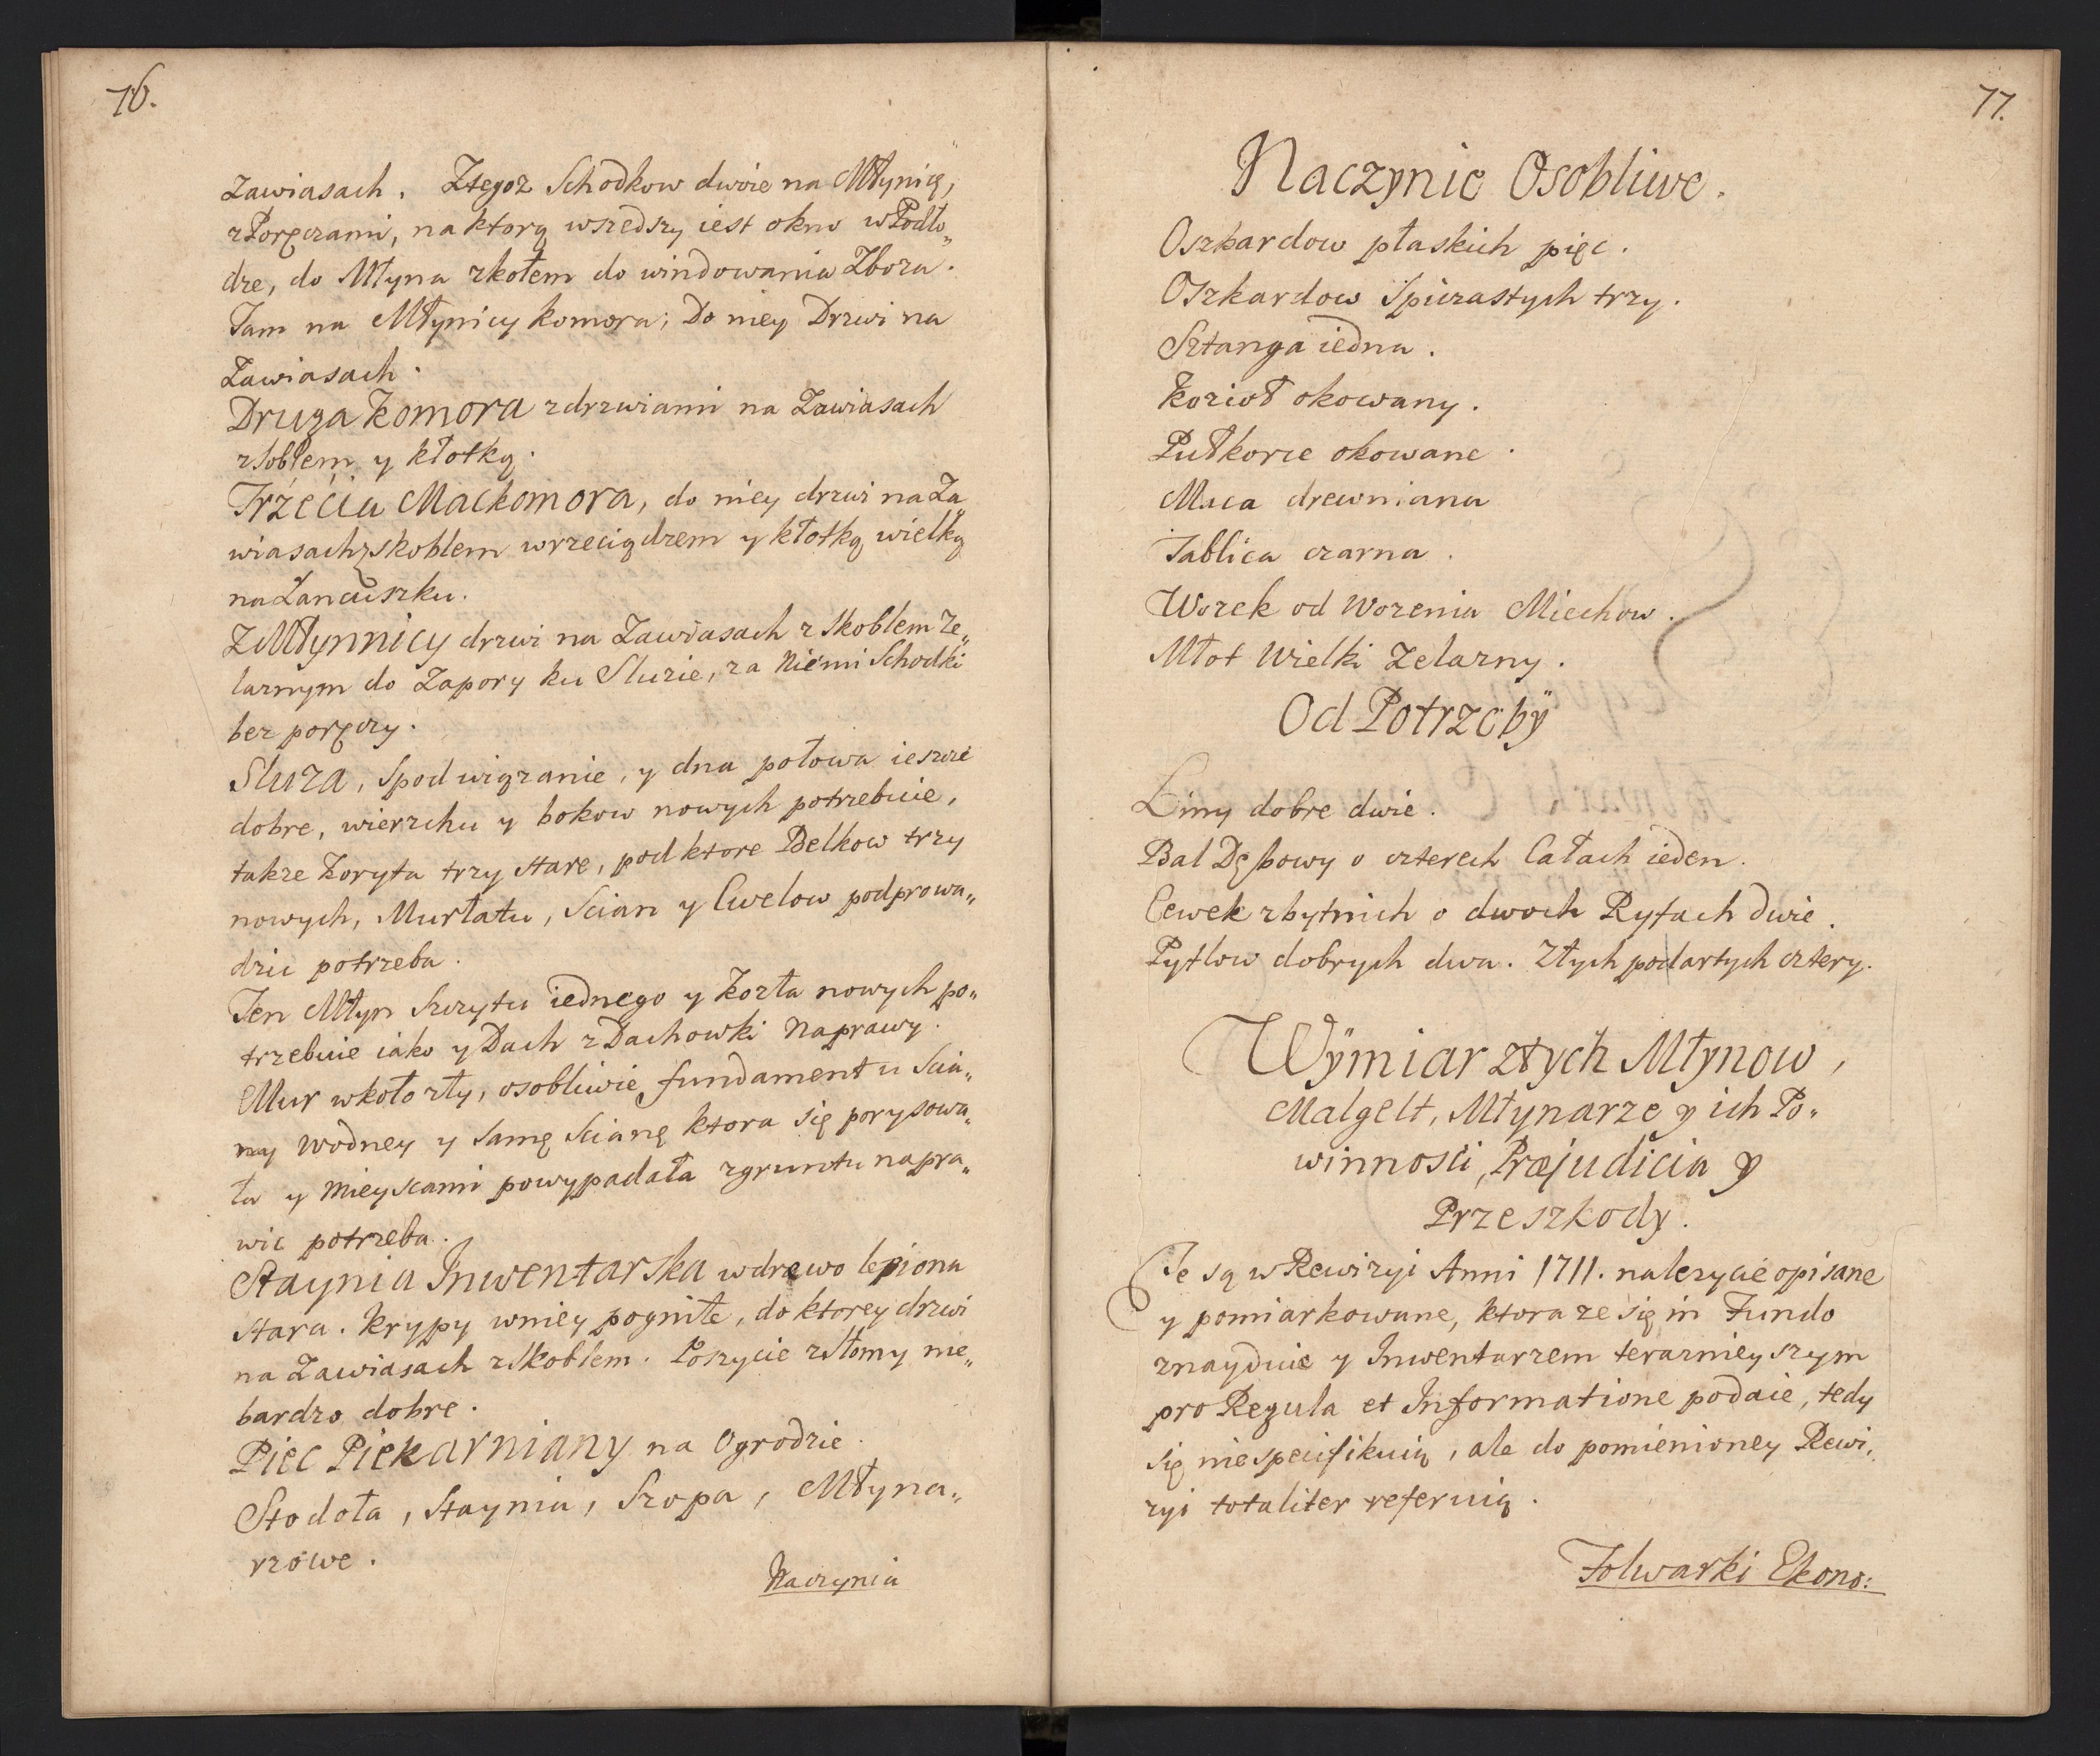 76.
Zawiasach. Ztegoz Schodkow dwoie na Młynicę,
z Poręczami, na ktorą wszedszy iest okno w Podło„
dze, do Młyna z kołem do windowania Zboza.
Tam na Młynicy komora; Do niey Drzwi na
Zawiasach.
Druga Komora z drzwiami na Zawiasach
z skoblem y kłotką.
Trzecia Mackomora, do niey drzwi na Za„
wiasach z skoblem wrzeciądzem y kłotką wielką
na Łancuszku.
Z Młynnicy drzwi na Zawiasach z skoblem Ze„
laznym do Zapory ku Sluzie, za Niemi Schodki
bez poręczy.
Sluza, Spod wiązanie, y dna połowa ieszcze
dobre, wierzchu y bokow nowych potrzebuie,
takze Koryta trzy stare, pod ktore Belkow trzy
nowych, Murłatu, Scian y Cwelow podprowa„
dzic potrzeba.
Ten Młyn Szczytu iednego y Kozła nowych po„
trzebuie iako y Dach z Dachowki Naprawy.
Mur wkoło zły, osobliwie fundament u Scia„
ny Wodney y samę Scianę ktora się porysowa„
ła y Mieyscami powypadała z gruntu napra„
wic potrzeba.
Staynia Inwentarska w drzewo lepiona
stara. Krypy w niey pogniłe, do ktorey drzwi
na Zawiasach z skoblem. Poszycie z Słomy nie„
bardzo dobre.
Piec Piekarniany na Ogrodzie.
Stodoła, Staynia, Szopa, Młyna„
rzowe.
Naczynia
77.
Naczynie Osobliwe.
Oszkardow płaskich pięc.
Oszkardow Spiczastych trzy.
Sztanga iedna.
Kozioł okowany.
Pułkorce okowane.
Maca drewniana
Tablica czarna.
Worek od Wozenia Miechow.
Młot Wielki Zelazny.
Od Potrzeby
Liny dobre dwie.
Bal Dębowy o czterech Całach ieden.
Cewek zbytnich o dwoch Ryfach dwie.
Pytlow dobrych dwa. Złych podartych cztery.
Wymiar ztych Młynow,
Malgelt, Młynarze y ich Po„
winnosci, Præjudicia y
Przeszkody.
Te są w Rewizyi Anni 1711. nalezycie opisane
y pomiarkowane, ktora ze się in Fundo
znayduie y Inwentarzem teraznieyszym
pro Regula et Informatione podaie, tedy
się nie specifikuią, ale do pomienioney Rewi„
zyi totaliter referuią.
Folwarki Ekono: